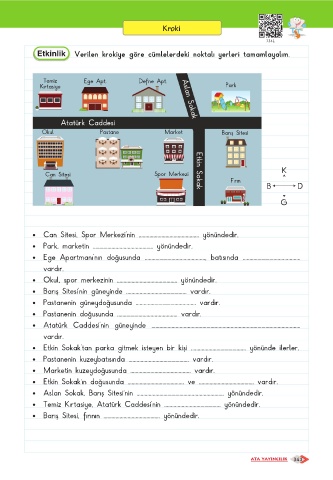 Kroki
Etkinlik Verilen krokiye göre cümlelerdeki noktalı yerleri tamamlayalım.
Temiz Kırtasiye
Ege Apt.
Defne Apt.
Aslan Sokak
Park
Atatürk Caddesi
Okul
Pastane
Market
Barış Sitesi
Etkin Sokak
Can Sitesi
Spor Merkezi
Fırın
K
B D
G
• Can Sitesi, Spor Merkezi'nin ........................ yönündedir.
• Park, marketin ........................ yönündedir.
• Ege Apartmanı'nın doğusunda ........................ batısında ........................
vardır.
• Okul, spor merkezinin ........................ yönündedir.
• Barış Sitesi'nin güneyinde ........................ vardır.
• Pastanenin güneydoğusunda ........................ vardır.
• Pastanenin doğusunda ........................ vardır.
• Atatürk Caddesi'nin güneyinde ........................
vardır.
• Etkin Sokak'tan parka gitmek isteyen bir kişi ........................ yönünde ilerler.
• Pastanenin kuzeybatısında ........................ vardır.
• Marketin kuzeydoğusunda ........................ vardır.
• Etkin Sokak'ın doğusunda ........................ ve ........................ vardır.
• Aslan Sokak, Barış Sitesi'nin ........................ yönündedir.
• Temiz Kırtasiye, Atatürk Caddesi'nin ........................ yönündedir.
• Barış Sitesi, fırının ........................ yönündedir.
ATA YAYINCILIK